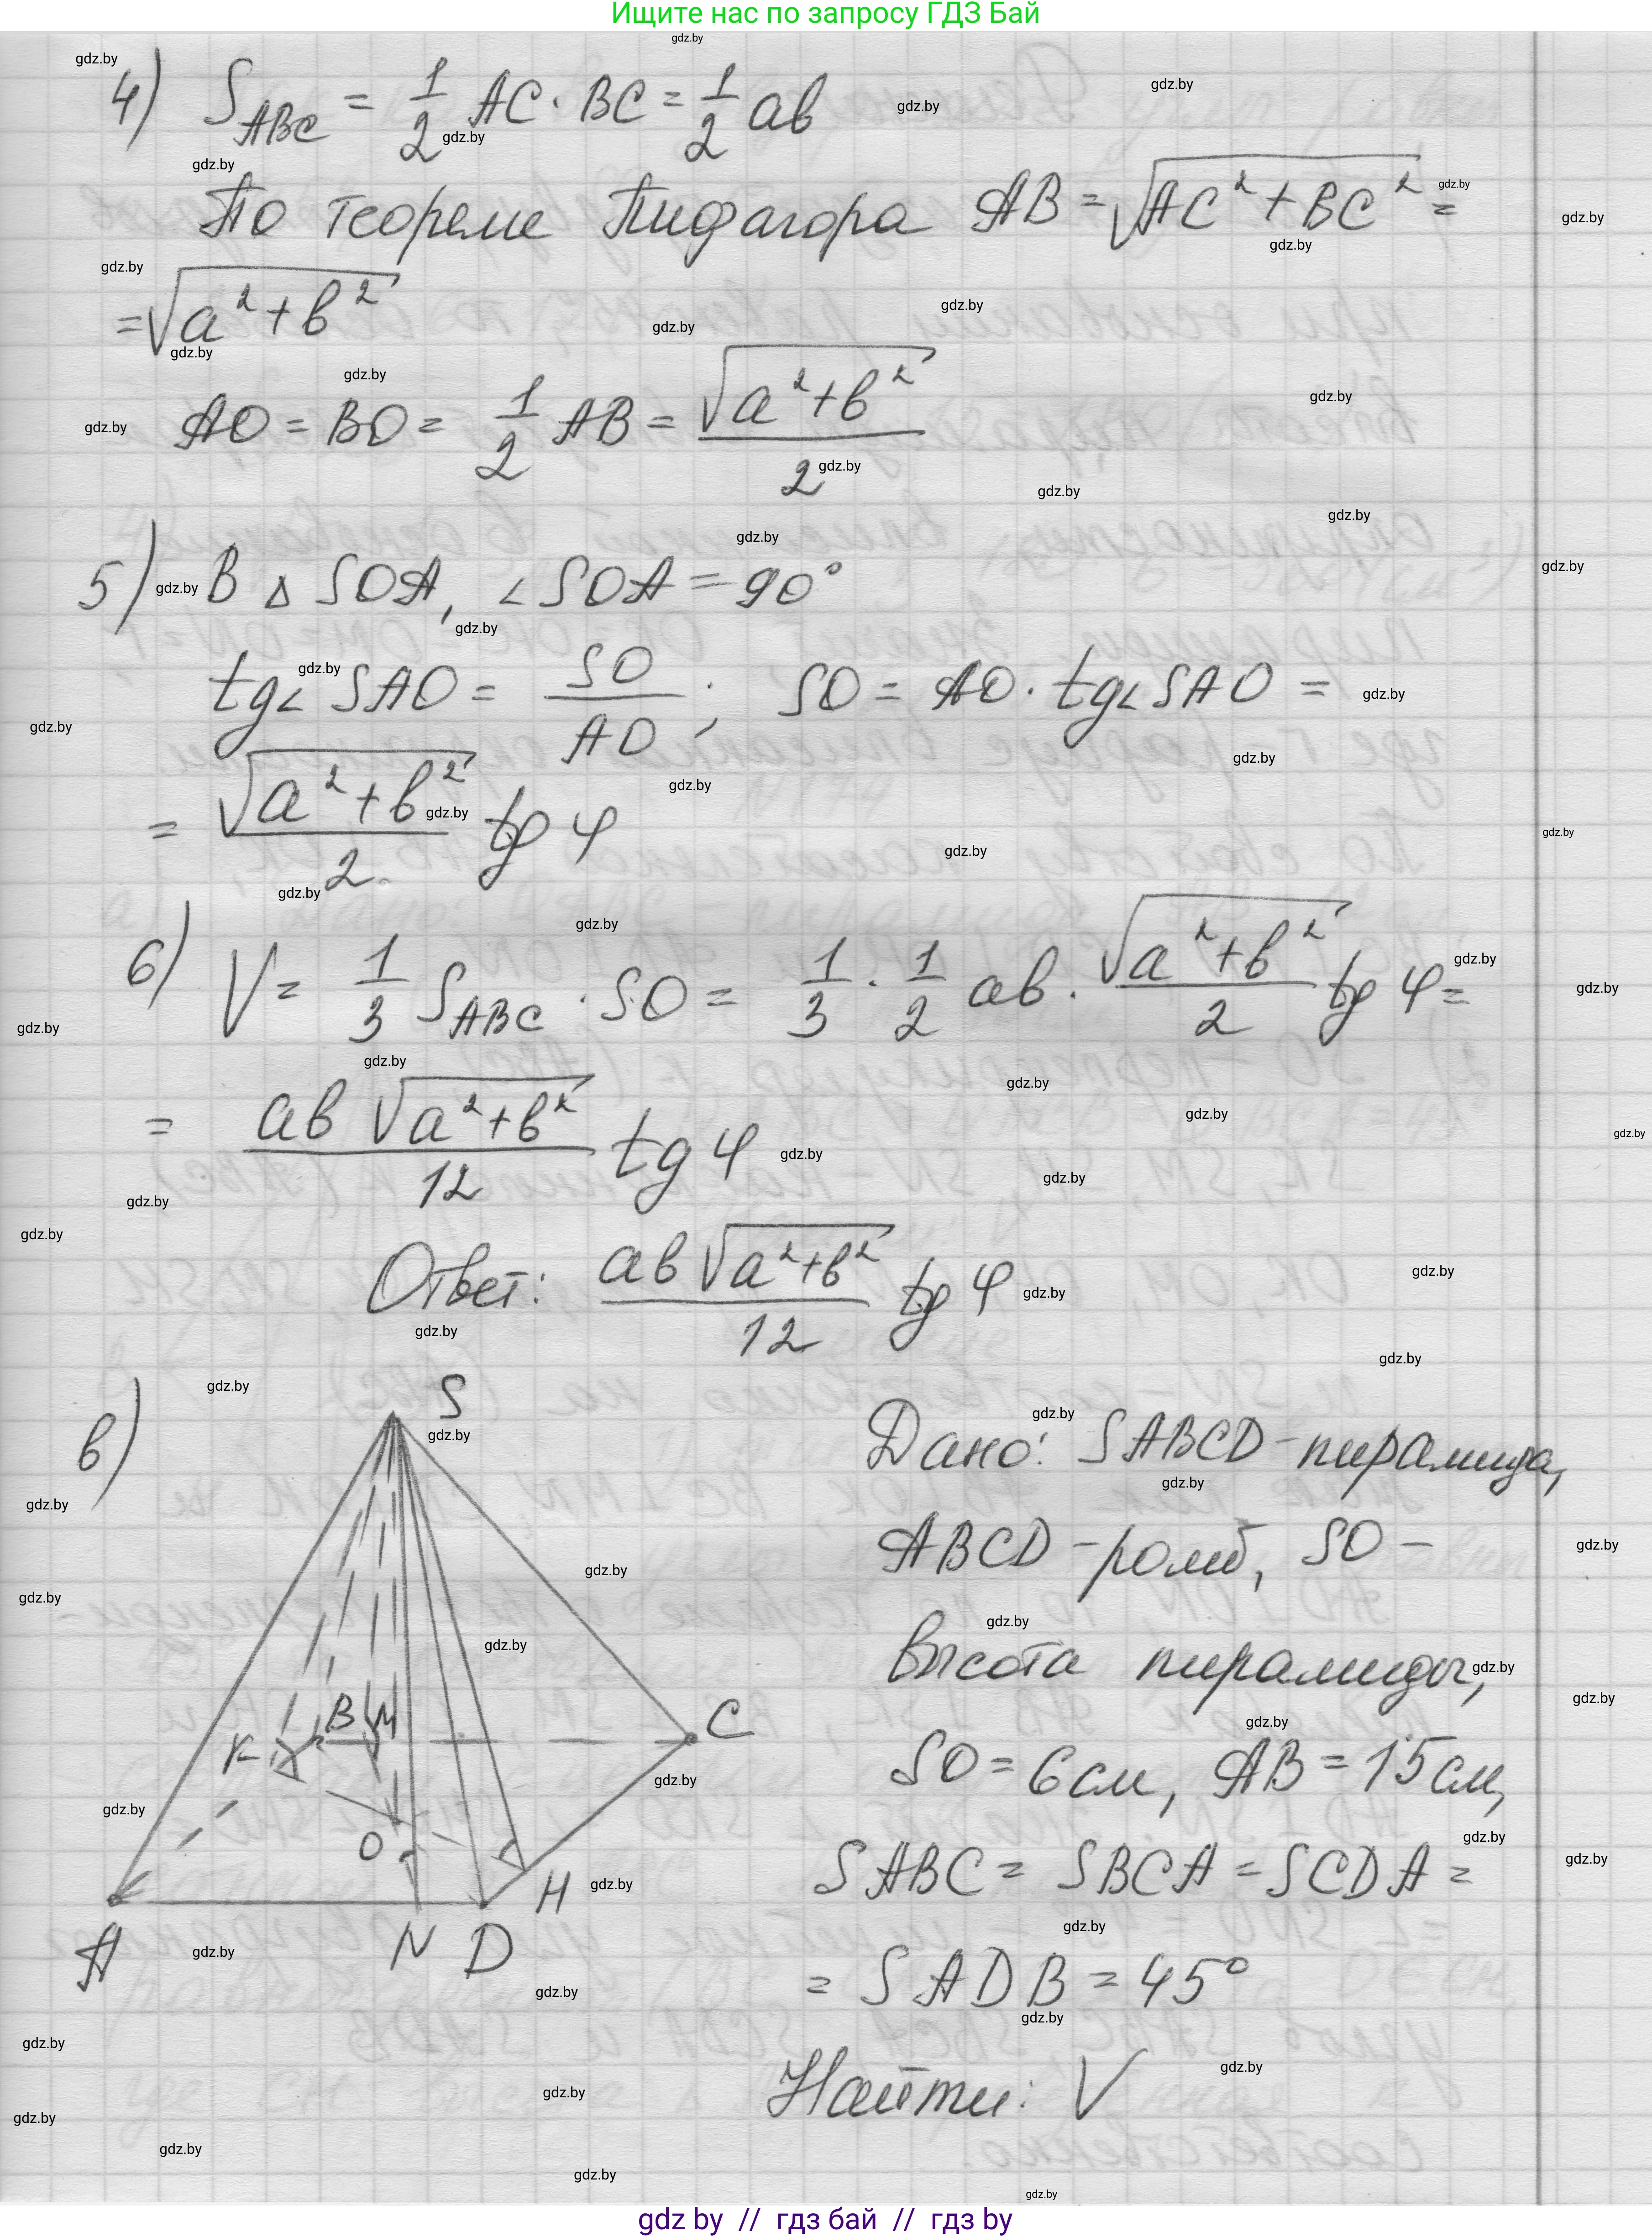 Ищите нас по запросу ГДЗ Бай
4) S_ABC = 1/2 AC · BC = 1/2 ав
По теореме Пифагора AB = √(AC² + BC²) =
= √(a² + в²)
AO = BO = 1/2 AB = √(a² + в²)/2
5) В △ SOA, ∠SOA = 90°
tg∠SAO = SO/AO ; SO = AO · tg∠SAO =
= √(a² + в²)/2 tg φ
6) V = 1/3 S_ABC · SO = 1/3 · 1/2 ав · √(a² + в²)/2 tg φ =
= ав √(a² + в²)/12 tg φ
Ответ: ав √(a² + в²)/12 tg φ
в)
S
K B M C
O
H
A N D
Дано: SABCD - пирамида,
ABCD - ромб, SO -
высота пирамиды,
SO = 6 см, AB = 15 см,
SABC = SBCA = SCDA =
= SADB = 45°
Найти: V
gdz by // гдз бай // гдз by
gdz.by